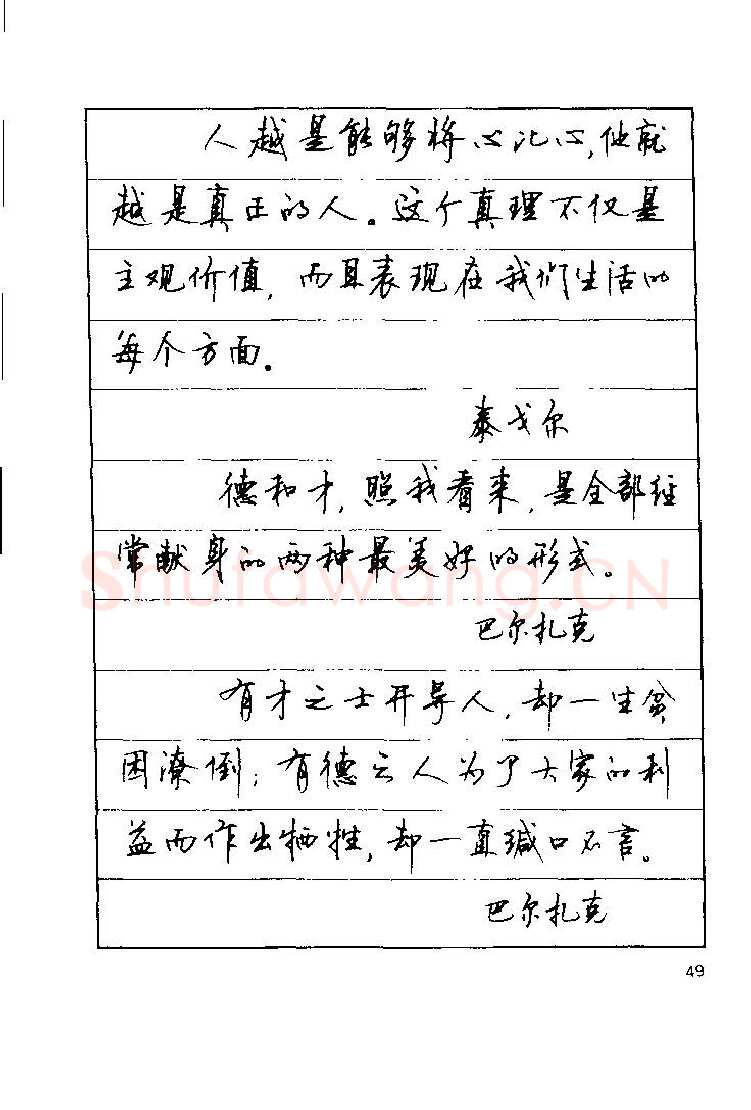 人越是能够将心比心,他就
越是真正的人。这个真理不仅是
主观价值,而且表现在我们生活的
每个方面。
泰戈尔
德和才,照我看来,是全部经
常献身的两种最美好的形式。
Shufawang.CN
巴尔扎克
有才之士开导人,却一生贫
困潦倒;有德之人为了大家的利
益而作出牺牲,却一直缄口不言。
巴尔扎克
49